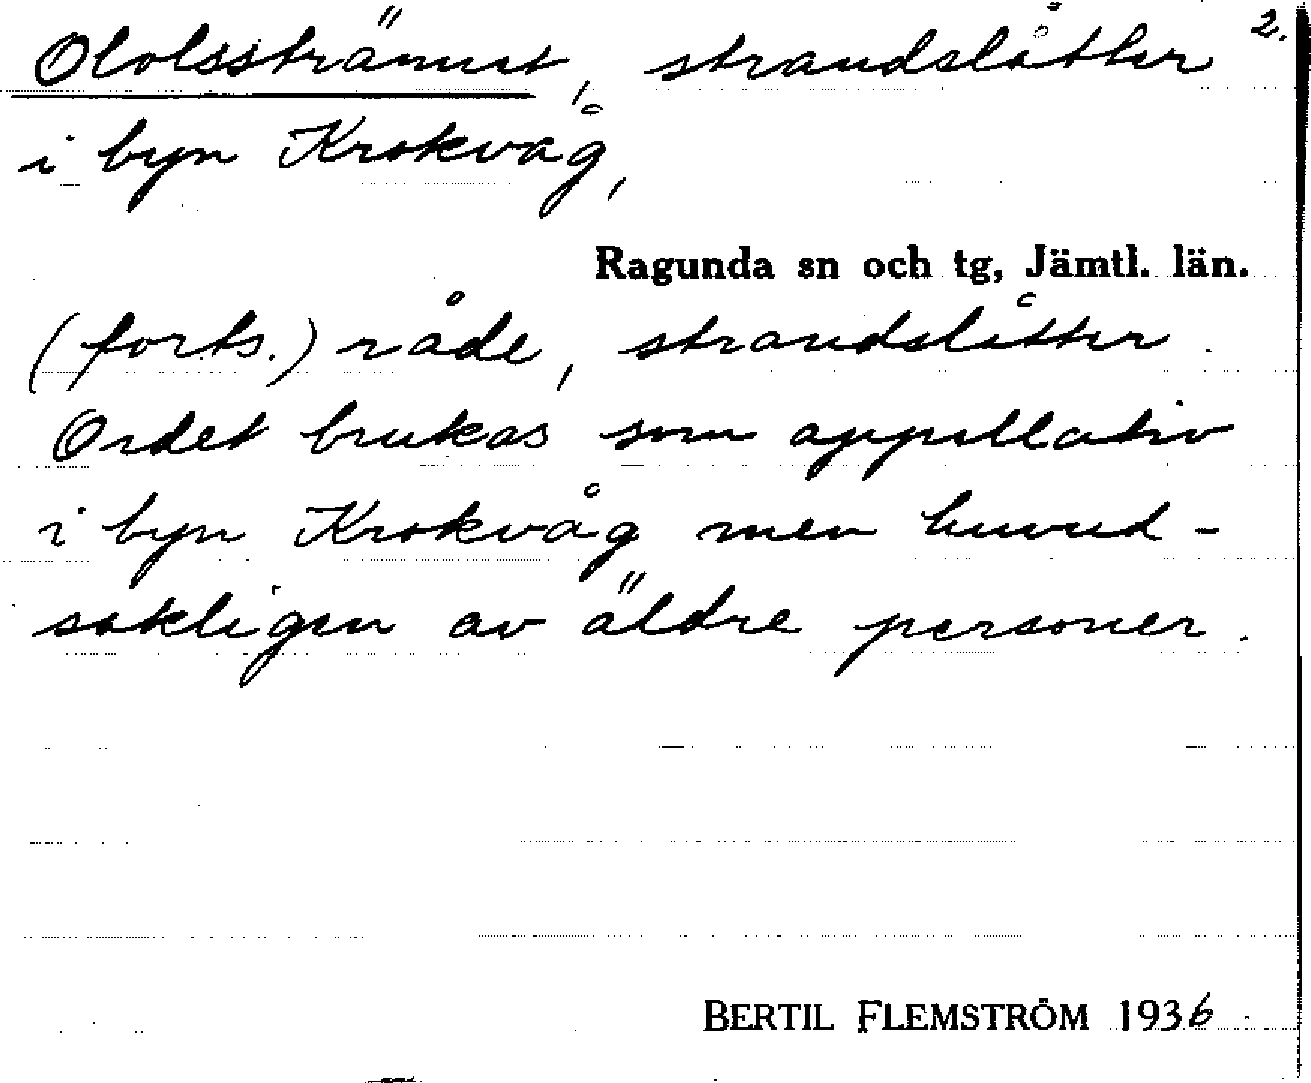 Ololssträmmet, strandslåtter 2.
i byn Krokvåg,
Ragunda sn och tg, Jämtl. län.
(forts.) råde, strandslåtter.
Ordet brukas som appellativ
i byn Krokvåg men huvud-
sakligen av äldre personer.
BERTIL FLEMSTRÖM 1936